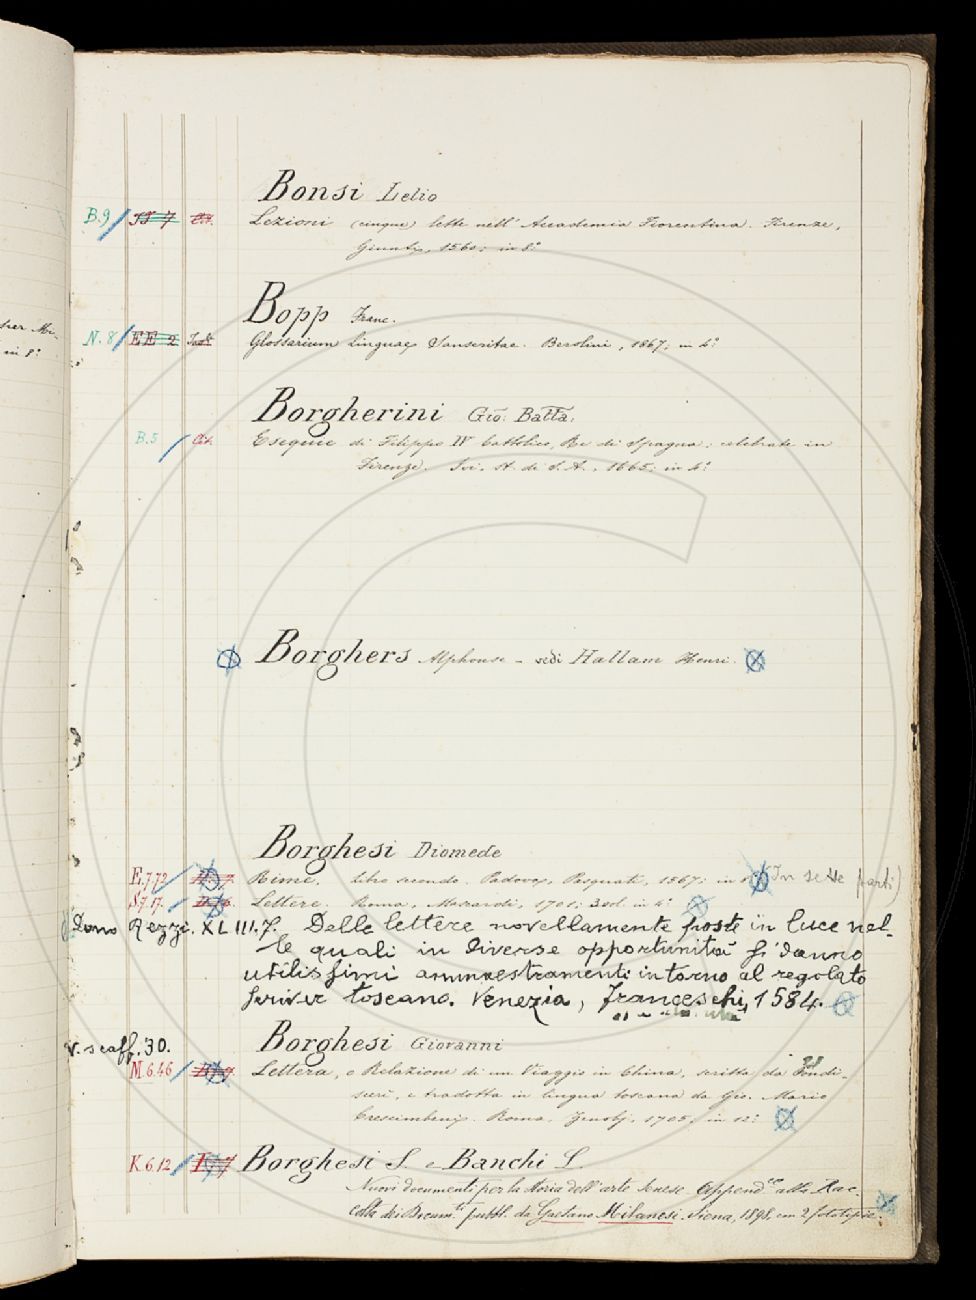 Bonsi Lelio
B.9 Lezioni (cinque) lette nell' Accademia Fiorentina. Firenze,
Giunti, 1560; in 8º
Bopp Franc.
N. 8 EE 2 Glossarium linguae Sanscritae. Berolini, 1867; in 4º
Borgherini Gio: Batta.
B.5 Esequie di Filippo IV Cattolico, Re di Spagna; celebrate in
Firenze. Ivi. St. di S.A., 1665; in 4º
Borghers Alphonse - vedi Hallam Henri.
Borghesi Diomede
E.7.72 Rime, libro secondo. Padova, Pasquati, 1567; in 8º (In sette parti)
S.7.17. Lettere. Roma, 1701; 3 vol. in 4º
Dono Rezzi. XLIII.7. Delle lettere novellamente poste in luce nel-
le quali in diverse opportunità si danno
utilissimi ammaestramenti intorno al regolato
scriver toscano. Venezia, Franceschi, 1584.
Borghesi Giovanni
V. scaff. 30.
M 6.46 Lettera, o Relazione di un Viaggio in China, scritta da Pondi-
sceri, e tradotta in lingua toscana da Gio. Mario
Crescimbeni. Roma, Zenobj, 1705; in 12º
K. 6.12 Borghesi S. e Banchi L.
Nuovi documenti per la storia dell'arte senese. Append.ce alla Rac-
colta dei Docum.ti pubbl. da Gaetano Milanesi. Siena, 1898, con 2 fototipie.